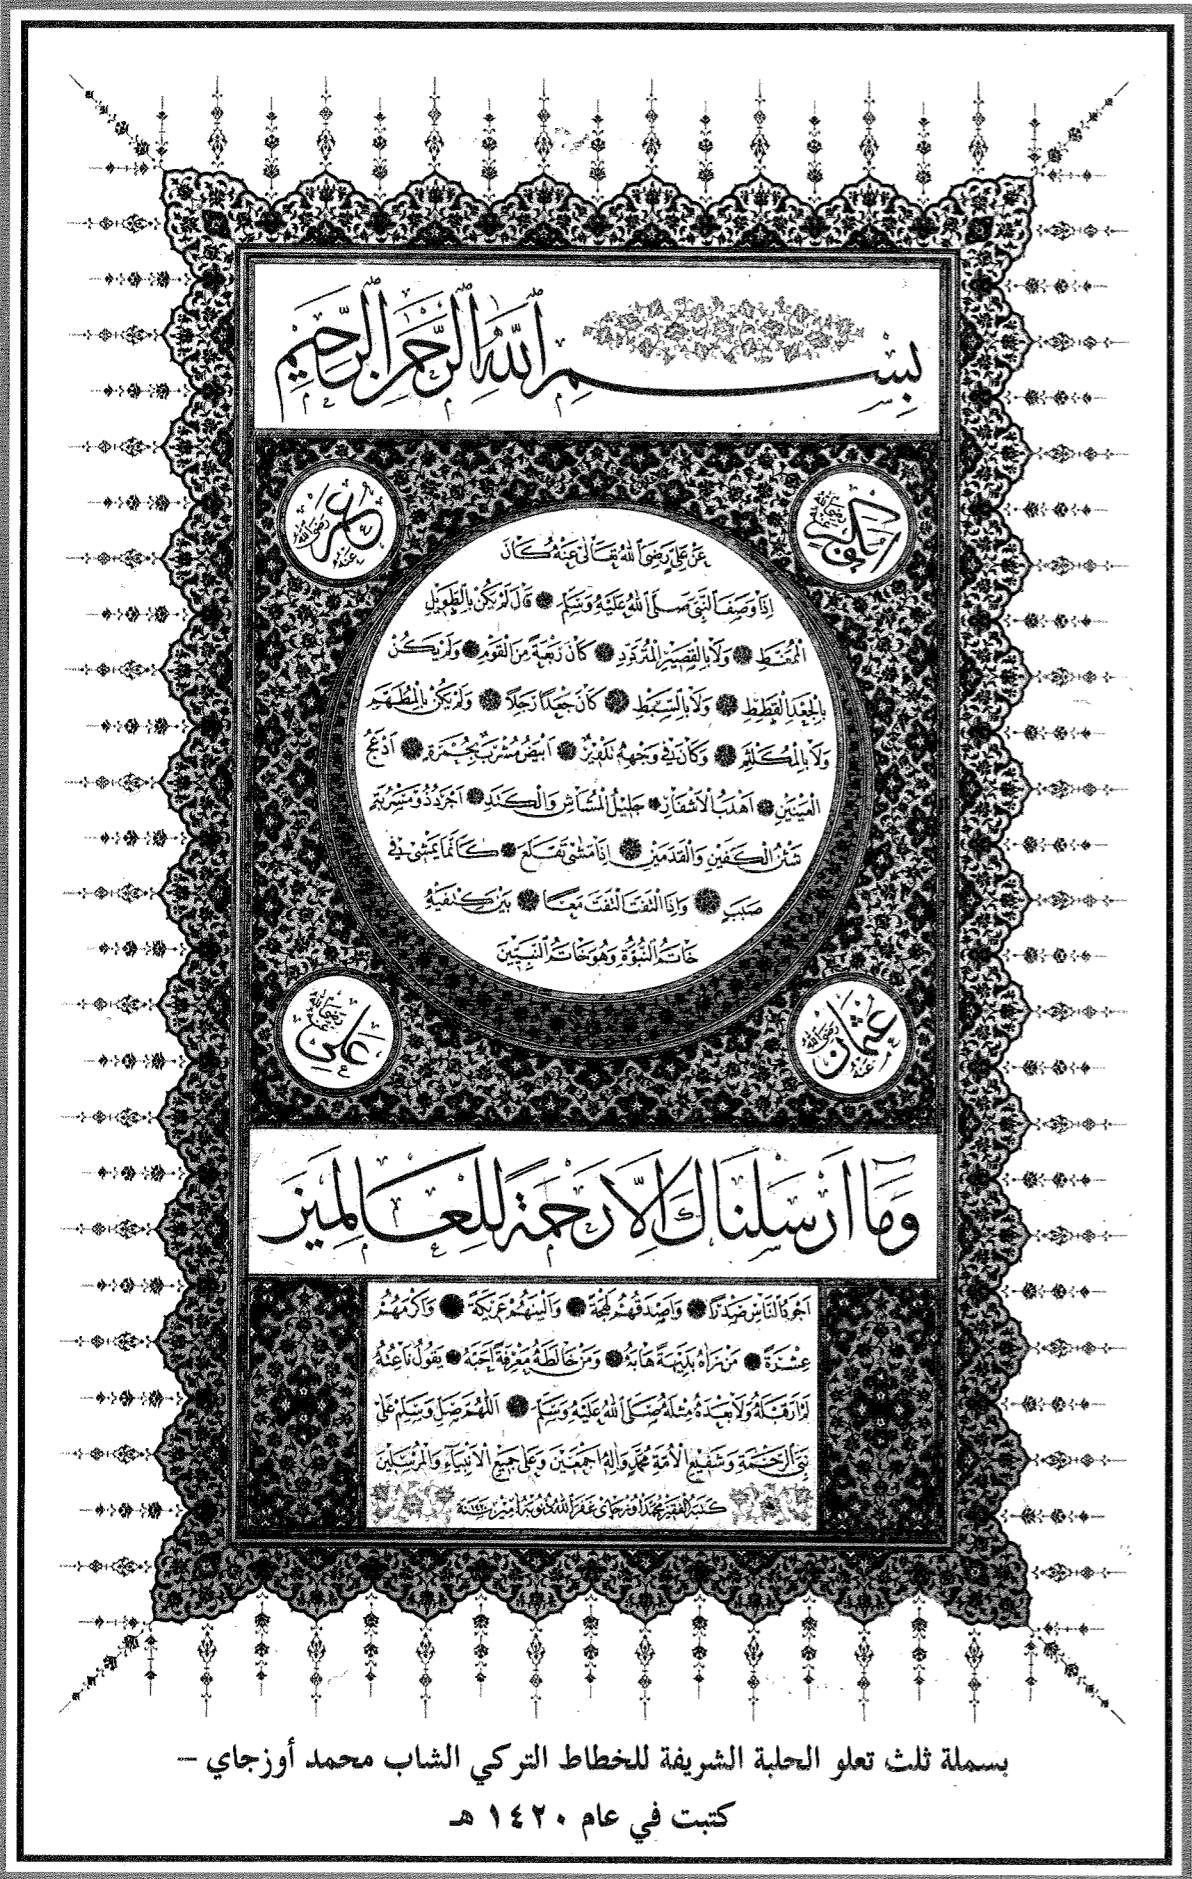 بِسْمِ اللّٰهِ الرَّحْمٰنِ الرَّحِيْمِ
ابوبكر رضي الله تعالى عنه
عمر رضي الله عنه
عَنْ عَلِيٍّ رَضِىَ اللّٰهُ تَعَالٰى عَنْهُ كَانَ
اِذَا وَصَفَ النَّبِىَّ صَلَّى اللّٰهُ عَلَيْهِ وَسَلَّمَ قَالَ لَمْ يَكُنْ بِالطَّوِيْلِ
الْمُمَّغِطِ وَلَا بِالْقَصِيْرِ الْمُتَرَدِّدِ كَانَ رَبْعَةً مِنَ الْقَوْمِ وَلَمْ يَكُنْ
بِالْجَعْدِ الْقَطَطِ وَلَا بِالسَّبِطِ كَانَ جَعْدًا رَجِلًا وَلَمْ يَكُنْ بِالْمُطَهَّمِ
وَلَا بِالْمُكَلْثَمِ وَكَانَ فِى وَجْهِهِ تَدْوِيْرٌ اَبْيَضُ مُشْرَبٌ بِحُمْرَةٍ اَدْعَجُ
الْعَيْنَيْنِ اَهْدَبُ الْاَشْفَارِ جَلِيْلُ الْمُشَاشِ وَالْكَتَدِ اَجْرَدُ ذُو مَسْرُبَةٍ
شَثْنُ الْكَفَّيْنِ وَالْقَدَمَيْنِ اِذَا مَشٰى تَقَلَّعَ كَاَنَّمَا يَمْشِى فِى
صَبَبٍ وَاِذَا الْتَفَتَ الْتَفَتَ مَعًا بَيْنَ كَتِفَيْهِ
خَاتَمُ النُّبُوَّةِ وَهُوَ خَاتَمُ النَّبِيِّيْنَ
عثمان رضي الله عنه
علي رضي الله تعالى عنه
وَمَا اَرْسَلْنَاكَ اِلَّا رَحْمَةً لِلْعَالَمِيْنَ
اَجْوَدُ النَّاسِ صَدْرًا وَاَصْدَقُهُمْ لَهْجَةً وَاَلْيَنُهُمْ عَرِيْكَةً وَاَكْرَمُهُمْ
عِشْرَةً مَنْ رَاٰهُ بَدِيْهَةً هَابَهُ وَمَنْ خَالَطَهُ مَعْرِفَةً اَحَبَّهُ يَقُوْلُ نَاعِتُهُ
لَمْ اَرَ قَبْلَهُ وَلَا بَعْدَهُ مِثْلَهُ صَلَّى اللّٰهُ عَلَيْهِ وَسَلَّمَ اَللّٰهُمَّ صَلِّ وَسَلِّمْ عَلٰى
نَبِىِّ الرَّحْمَةِ وَشَفِيْعِ الْاُمَّةِ مُحَمَّدٍ وَاٰلِهِ اَجْمَعِيْنَ وَعَلٰى جَمِيْعِ الْاَنْبِيَاءِ وَالْمُرْسَلِيْنَ
كتبه الفقير محمد اوزجاى غفر الله ذنوبه آمين سنة ١٤٢٠
بسملة ثلث تعلو الحلية الشريفة للخطاط التركي الشاب محمد أوزجاي –
كتبت في عام ١٤٢٠ هـ